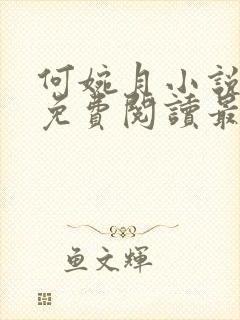 何婉月小說
免費閱讀最
魚文輝